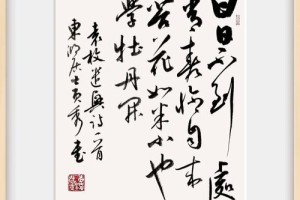 白日不到處
青春恰自来
苔花如米小也
學牡丹開
袁枚遣興詩一首
東湖居士